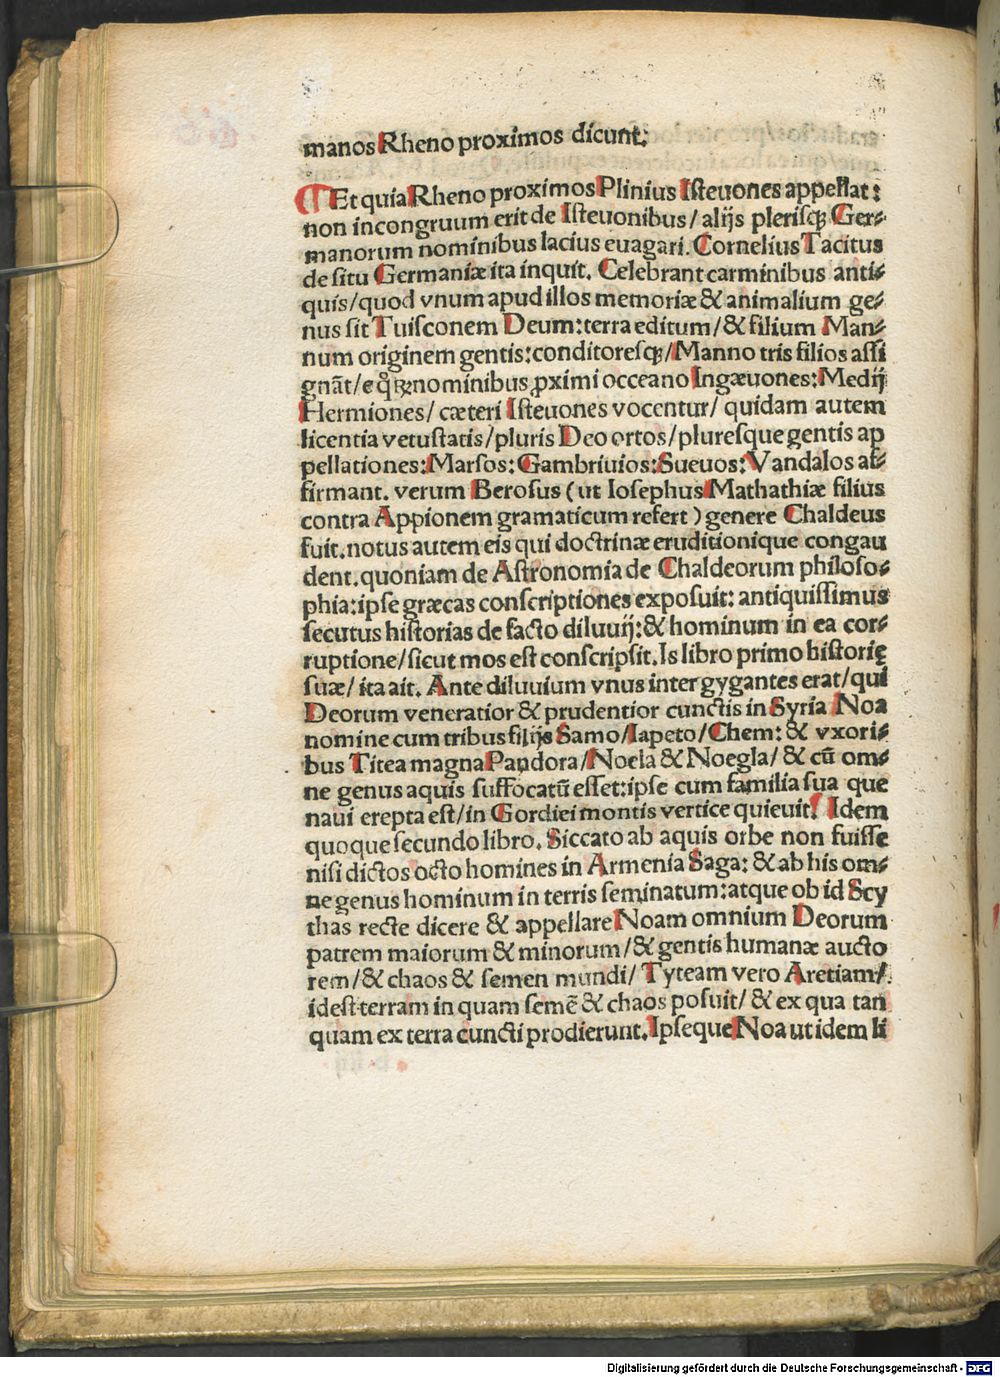 manos Rheno proximos dicunt:
Et quia Rheno proximos Plinius Isteuones appellat:
non incongruum erit de Isteuonibus/ alijs plerisqꝫ Ger⸗
manorum nominibus lacius euagari. Cornelius Tacitus
de situ Germaniæ ita inquit. Celebrant carminibus anti⸗
quis/quod vnum apud illos memoriæ & animalium ge⸗
nus sit Tuisconem Deum:terra editum/& filium Man⸗
num originem gentis:conditoresqꝫ/Manno tris filios assi
gnãt/e qͦꝝ nominibus ꝓximi occeano Ingæuones:Medij
Hermiones/ cæteri Isteuones vocentur/ quidam autem
licentia vetustatis/pluris Deo ortos/pluresque gentis ap
pellationes:Marsos:Gambriuios:Sueuos:Vandalos af⸗
firmant. verum Berosus (ut Iosephus Mathathiæ filius
contra Appionem gramaticum refert) genere Chaldeus
fuit.notus autem eis qui doctrinæ eruditionique congau
dent.quoniam de Astronomia de Chaldeorum philoso⸗
phia:ipse græcas conscriptiones exposuit: antiquissimus
secutus historias de facto diluuij:& hominum in ea cor⸗
ruptione/sicut mos est conscripsit.Is libro primo historię
suæ/ ita ait. Ante diluuium vnus inter gygantes erat/qui
Deorum veneratior & prudentior cunctis in Syria Noa
nomine cum tribus filijs Samo/Iapeto/Chem: & vxori⸗
bus Titea magna Pandora/Noela & Noegla/ & cũ om⸗
ne genus aquis suffocatũ esset:ipse cum familia sua que
naui erepta est/in Gordiei montis vertice quieuit. Idem
quoque secundo libro. Siccato ab aquis orbe non fuisse
nisi dictos octo homines in Armenia Saga: & ab his om⸗
ne genus hominum in terris seminatum:atque ob id Scy
thas recte dicere & appellare Noam omnium Deorum
patrem maiorum & minorum/& gentis humanæ aucto
rem/& chaos & semen mundi/ Tyteam vero Aretiam/
idest terram in quam semẽ & chaos posuit/ & ex qua tan
quam ex terra cuncti prodierunt.Ipseque Noa ut idem li
Digitalisierung gefördert durch die Deutsche Forschungsgemeinschaft - DFG